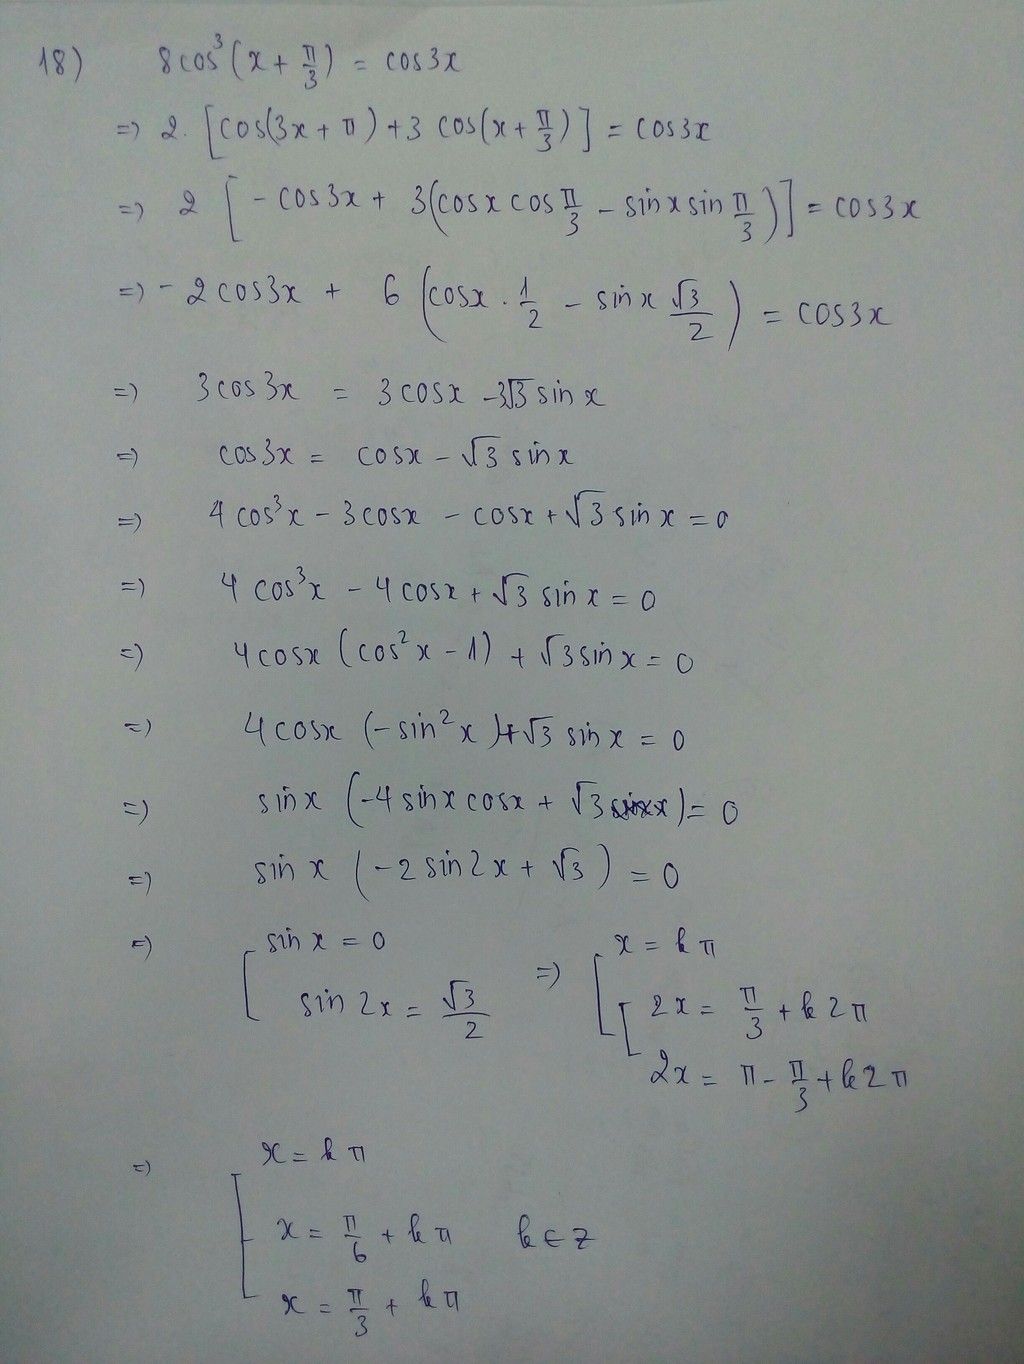 18) 8cos³(x + π/3) = cos3x
=> 2. [cos(3x + π) + 3 cos(x + π/3)] = cos3x
=> 2 [- cos3x + 3(cosx cos π/3 - sinx sin π/3)] = cos3x
=> - 2cos3x + 6 (cosx . 1/2 - sinx √3/2) = cos3x
=> 3cos3x = 3cosx - 3√3 sinx
=> cos3x = cosx - √3 sinx
=> 4cos³x - 3cosx - cosx + √3 sinx = 0
=> 4cos³x - 4cosx + √3 sinx = 0
=> 4cosx (cos²x - 1) + √3 sinx = 0
=> 4cosx (-sin²x) + √3 sinx = 0
=> sinx (-4sinxcosx + √3) = 0
=> sinx (-2sin2x + √3) = 0
=> [ sinx = 0 => [ x = kπ
sin2x = √3/2 [ 2x = π/3 + k2π
2x = π - π/3 + k2π
=> [ x = kπ
x = π/6 + kπ k ∈ Z
x = π/3 + kπ